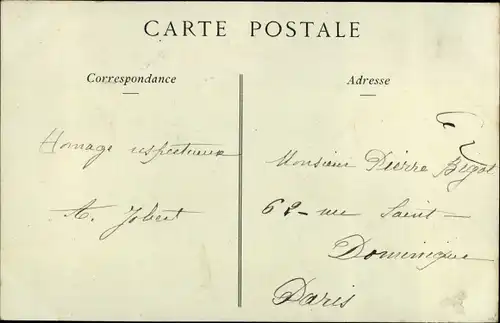 CARTE POSTALE
Correspondance
Adresse
Homage respectueux
A. Jobert
Monsieur Pierre Bigot
62 - rue Saint-
Dominique
Paris